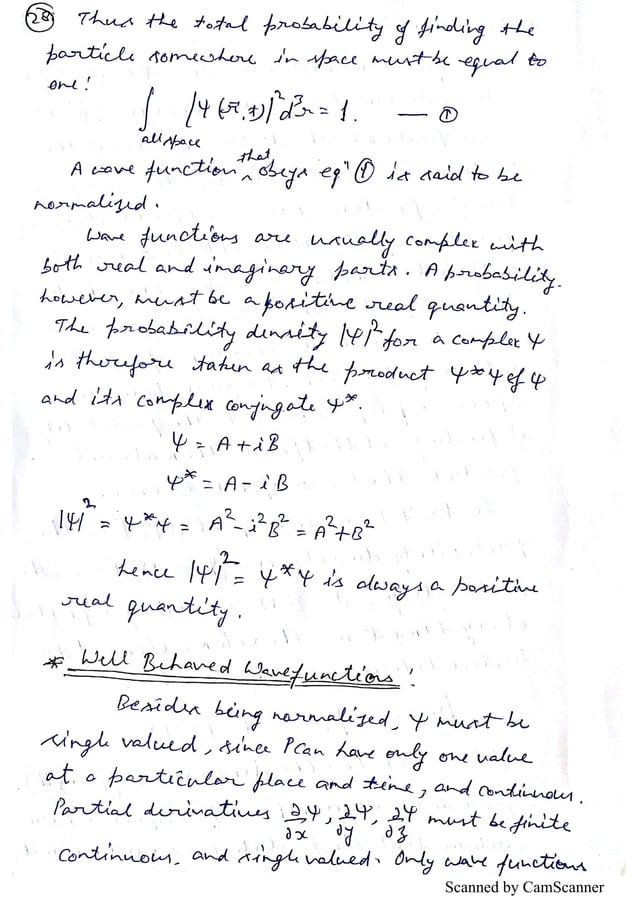 28 Thus the total probability of finding the
particle somewhere in space must be equal to
one!
∫ |ψ(r⃗,t)|²d³r = 1. — ①
all space
A wave function that obeys eqⁿ ① is said to be
normalized.
Wave functions are usually complex with
both real and imaginary parts. A probability.
however, must be a positive real quantity.
The probability density |ψ|² for a complex ψ
is therefore taken as the product ψ*ψ of ψ
and its complex conjugate ψ*.
ψ = A+iB
ψ* = A-iB
|ψ|² = ψ*ψ = A²-i²B² = A²+B²
hence |ψ|² = ψ*ψ is always a positive
real quantity.
* Well Behaved Wavefunctions!
Besides being normalized, ψ must be
single valued, since P can have only one value
at a particular place and time, and continuous.
Partial derivatives ∂ψ/∂x, ∂ψ/∂y, ∂ψ/∂z must be finite
continuous, and single valued. Only wave functions
Scanned by CamScanner